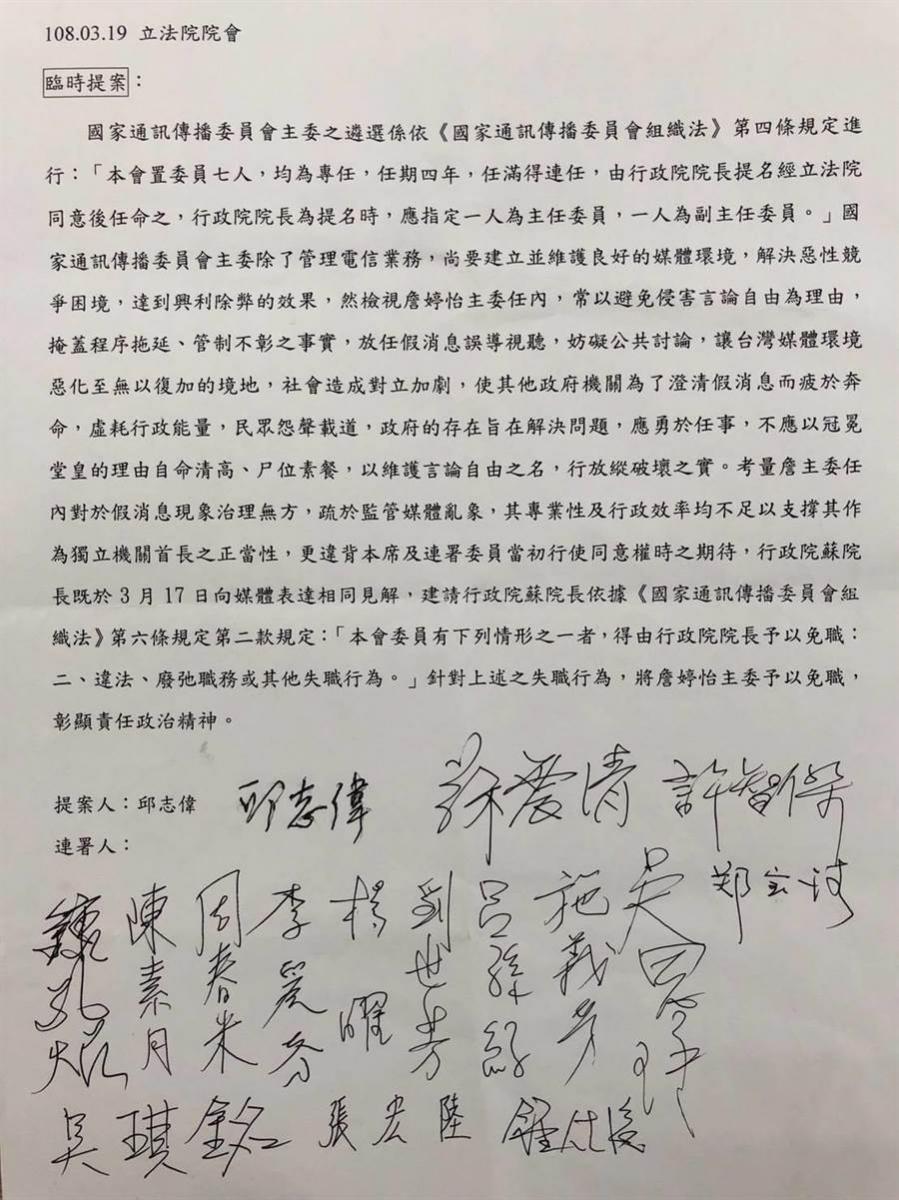 108.03.19 立法院院會
臨時提案：
國家通訊傳播委員會主委之遴選係依《國家通訊傳播委員會組織法》第四條規定進
行：「本會置委員七人，均為專任，任期四年，任滿得連任，由行政院院長提名經立法院
同意後任命之，行政院院長為提名時，應指定一人為主任委員，一人為副主任委員。」國
家通訊傳播委員會主委除了管理電信業務，尚要建立並維護良好的媒體環境，解決惡性競
爭困境，達到興利除弊的效果，然檢視詹婷怡主委任內，常以避免侵害言論自由為理由，
掩蓋程序拖延、管制不彰之事實，放任假消息誤導視聽，妨礙公共討論，讓台灣媒體環境
惡化至無以復加的境地，社會造成對立加劇，使其他政府機關為了澄清假消息而疲於奔
命，虛耗行政能量，民眾怨聲載道，政府的存在旨在解決問題，應勇於任事，不應以冠冕
堂皇的理由自命清高、尸位素餐，以維護言論自由之名，行放縱破壞之實。考量詹主委任
內對於假消息現象治理無方，疏於監管媒體亂象，其專業性及行政效率均不足以支撐其作
為獨立機關首長之正當性，更違背本席及連署委員當初行使同意權時之期待，行政院蘇院
長既於 3 月 17 日向媒體表達相同見解，建請行政院蘇院長依據《國家通訊傳播委員會組
織法》第六條規定第二款規定：「本會委員有下列情形之一者，得由行政院院長予以免職：
二、違法、廢弛職務或其他失職行為。」針對上述之失職行為，將詹婷怡主委予以免職，
彰顯責任政治精神。
提案人：邱志偉 邱志偉 蘇震清 許智傑
連署人：
鍾孔炤
陳素月
周春米
李麗芬
楊曜
劉世芳
呂孫綾
施義芳
吳
郑宝清
吳琪銘 張宏陸 鍾佳濱